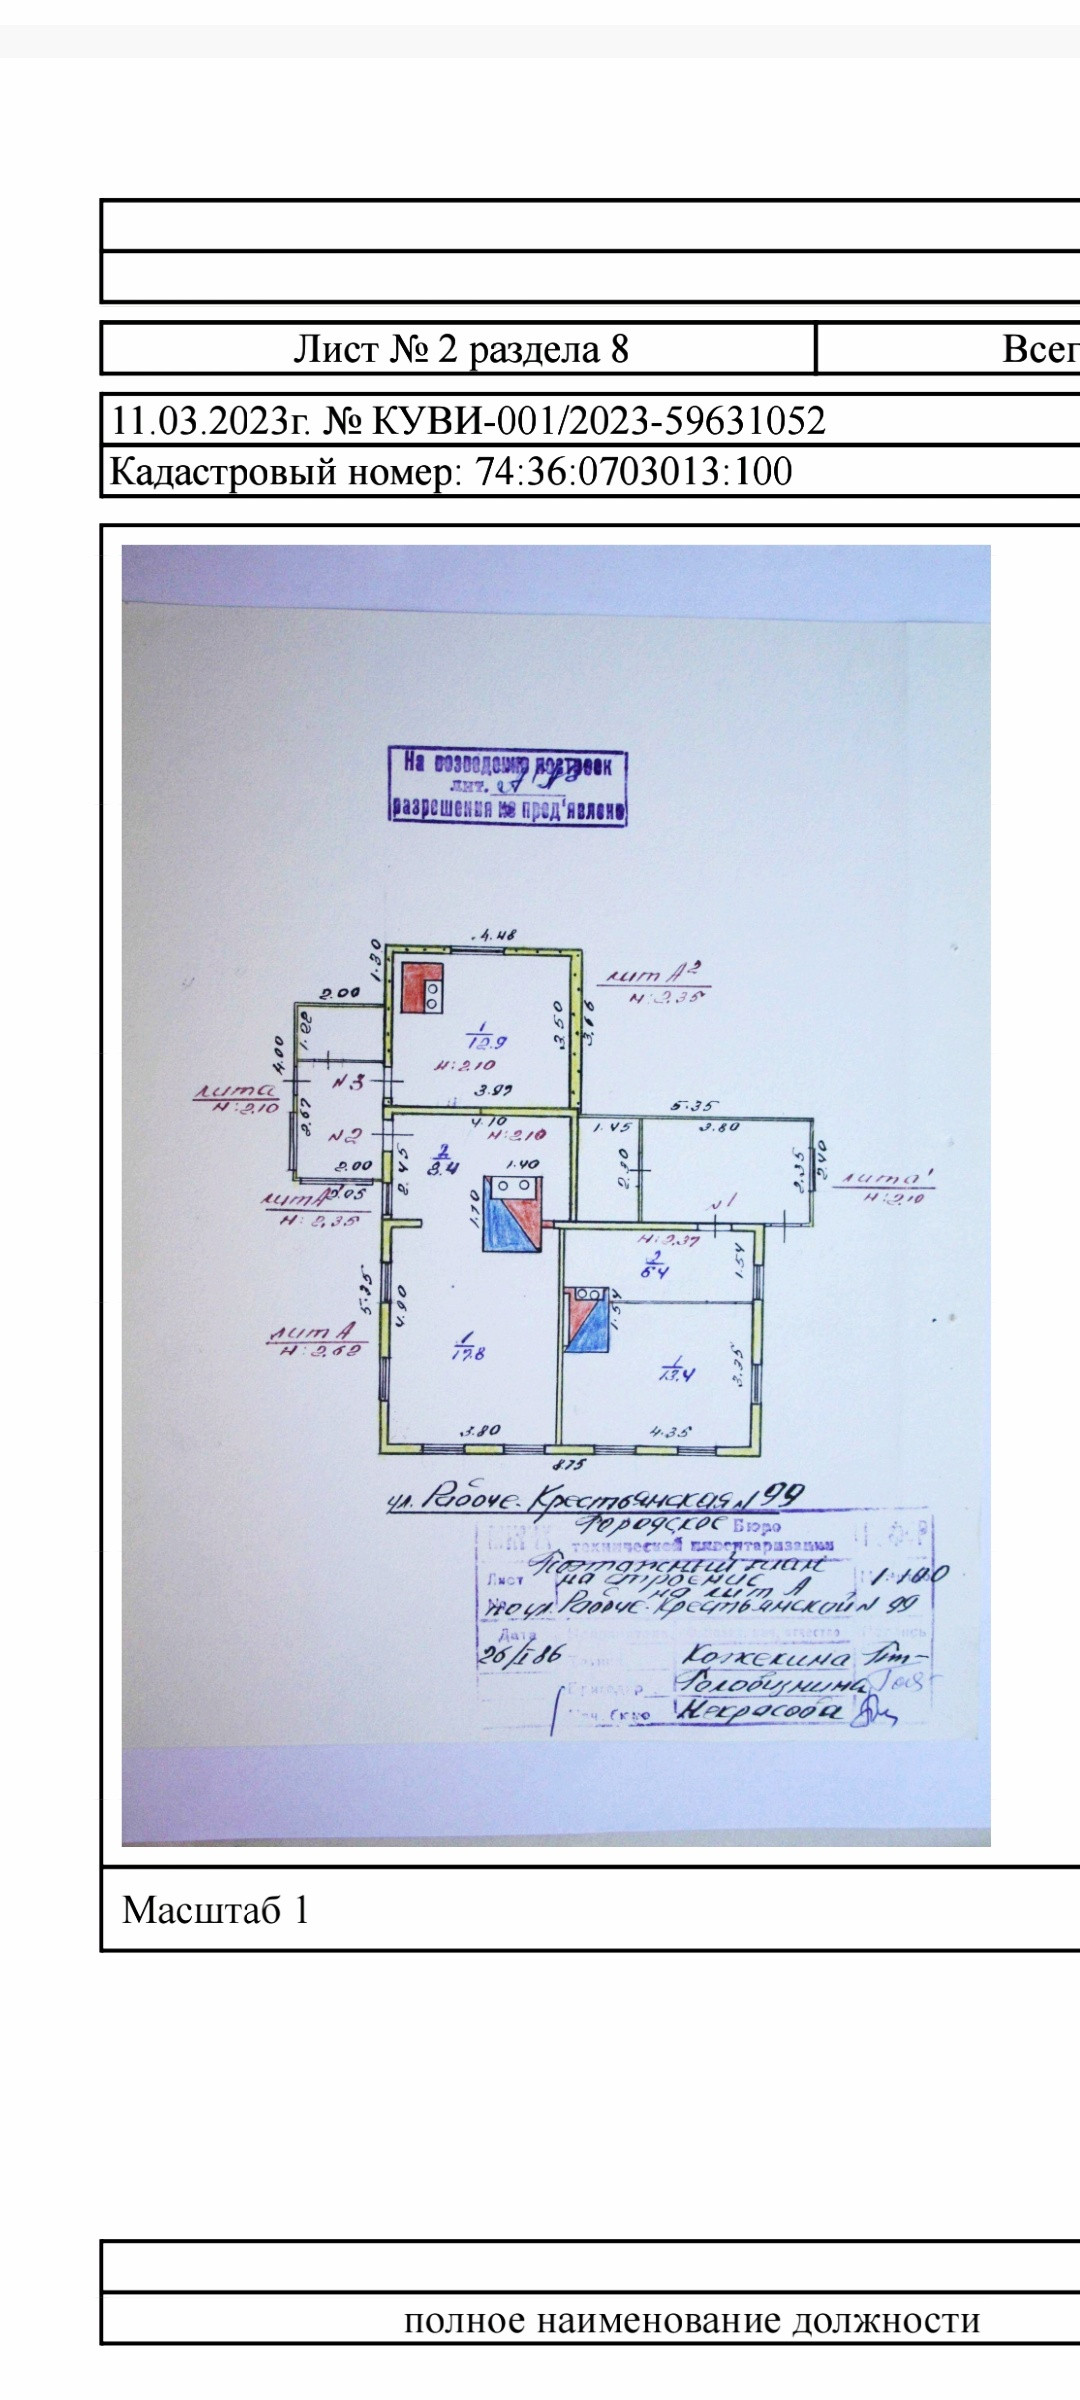 Лист № 2 раздела 8
Всег
11.03.2023г. № КУВИ-001/2023-59631052
Кадастровый номер: 74:36:0703013:100
На возведение построек
лит.
разрешения не пред'явлено
4.48
1.30
лит А²
н:2.35
2.00
1.22
3.50
3.66
1
12.9
4.00
н:2.10
N3
лит а
н:2.10
3.97
2.67
5.35
4.10
1.45
3.80
N2
н:2.10
2
9.4
1.40
2.45
2.30
2.35
2.40
2.00
лит а'
н:2.10
2.05
лит А'
н:2.35
1.70
N1
н:2.37
2
6.4
1.54
5.25
4.90
1.54
лит А
н:2.62
1
17.8
1
13.4
3.25
3.80
4.35
8.75
ул. Рабоче-Крестьянская N 99
Городское Бюро
технической инвентаризации
Поэтажный план
Лист на строение 1:100
на лит А
по ул. Рабоче-Крестьянской N 99
Дата
26/I 86
Кожекина
Бригадир
Нач. бюро Некрасова
Масштаб 1
полное наименование должности